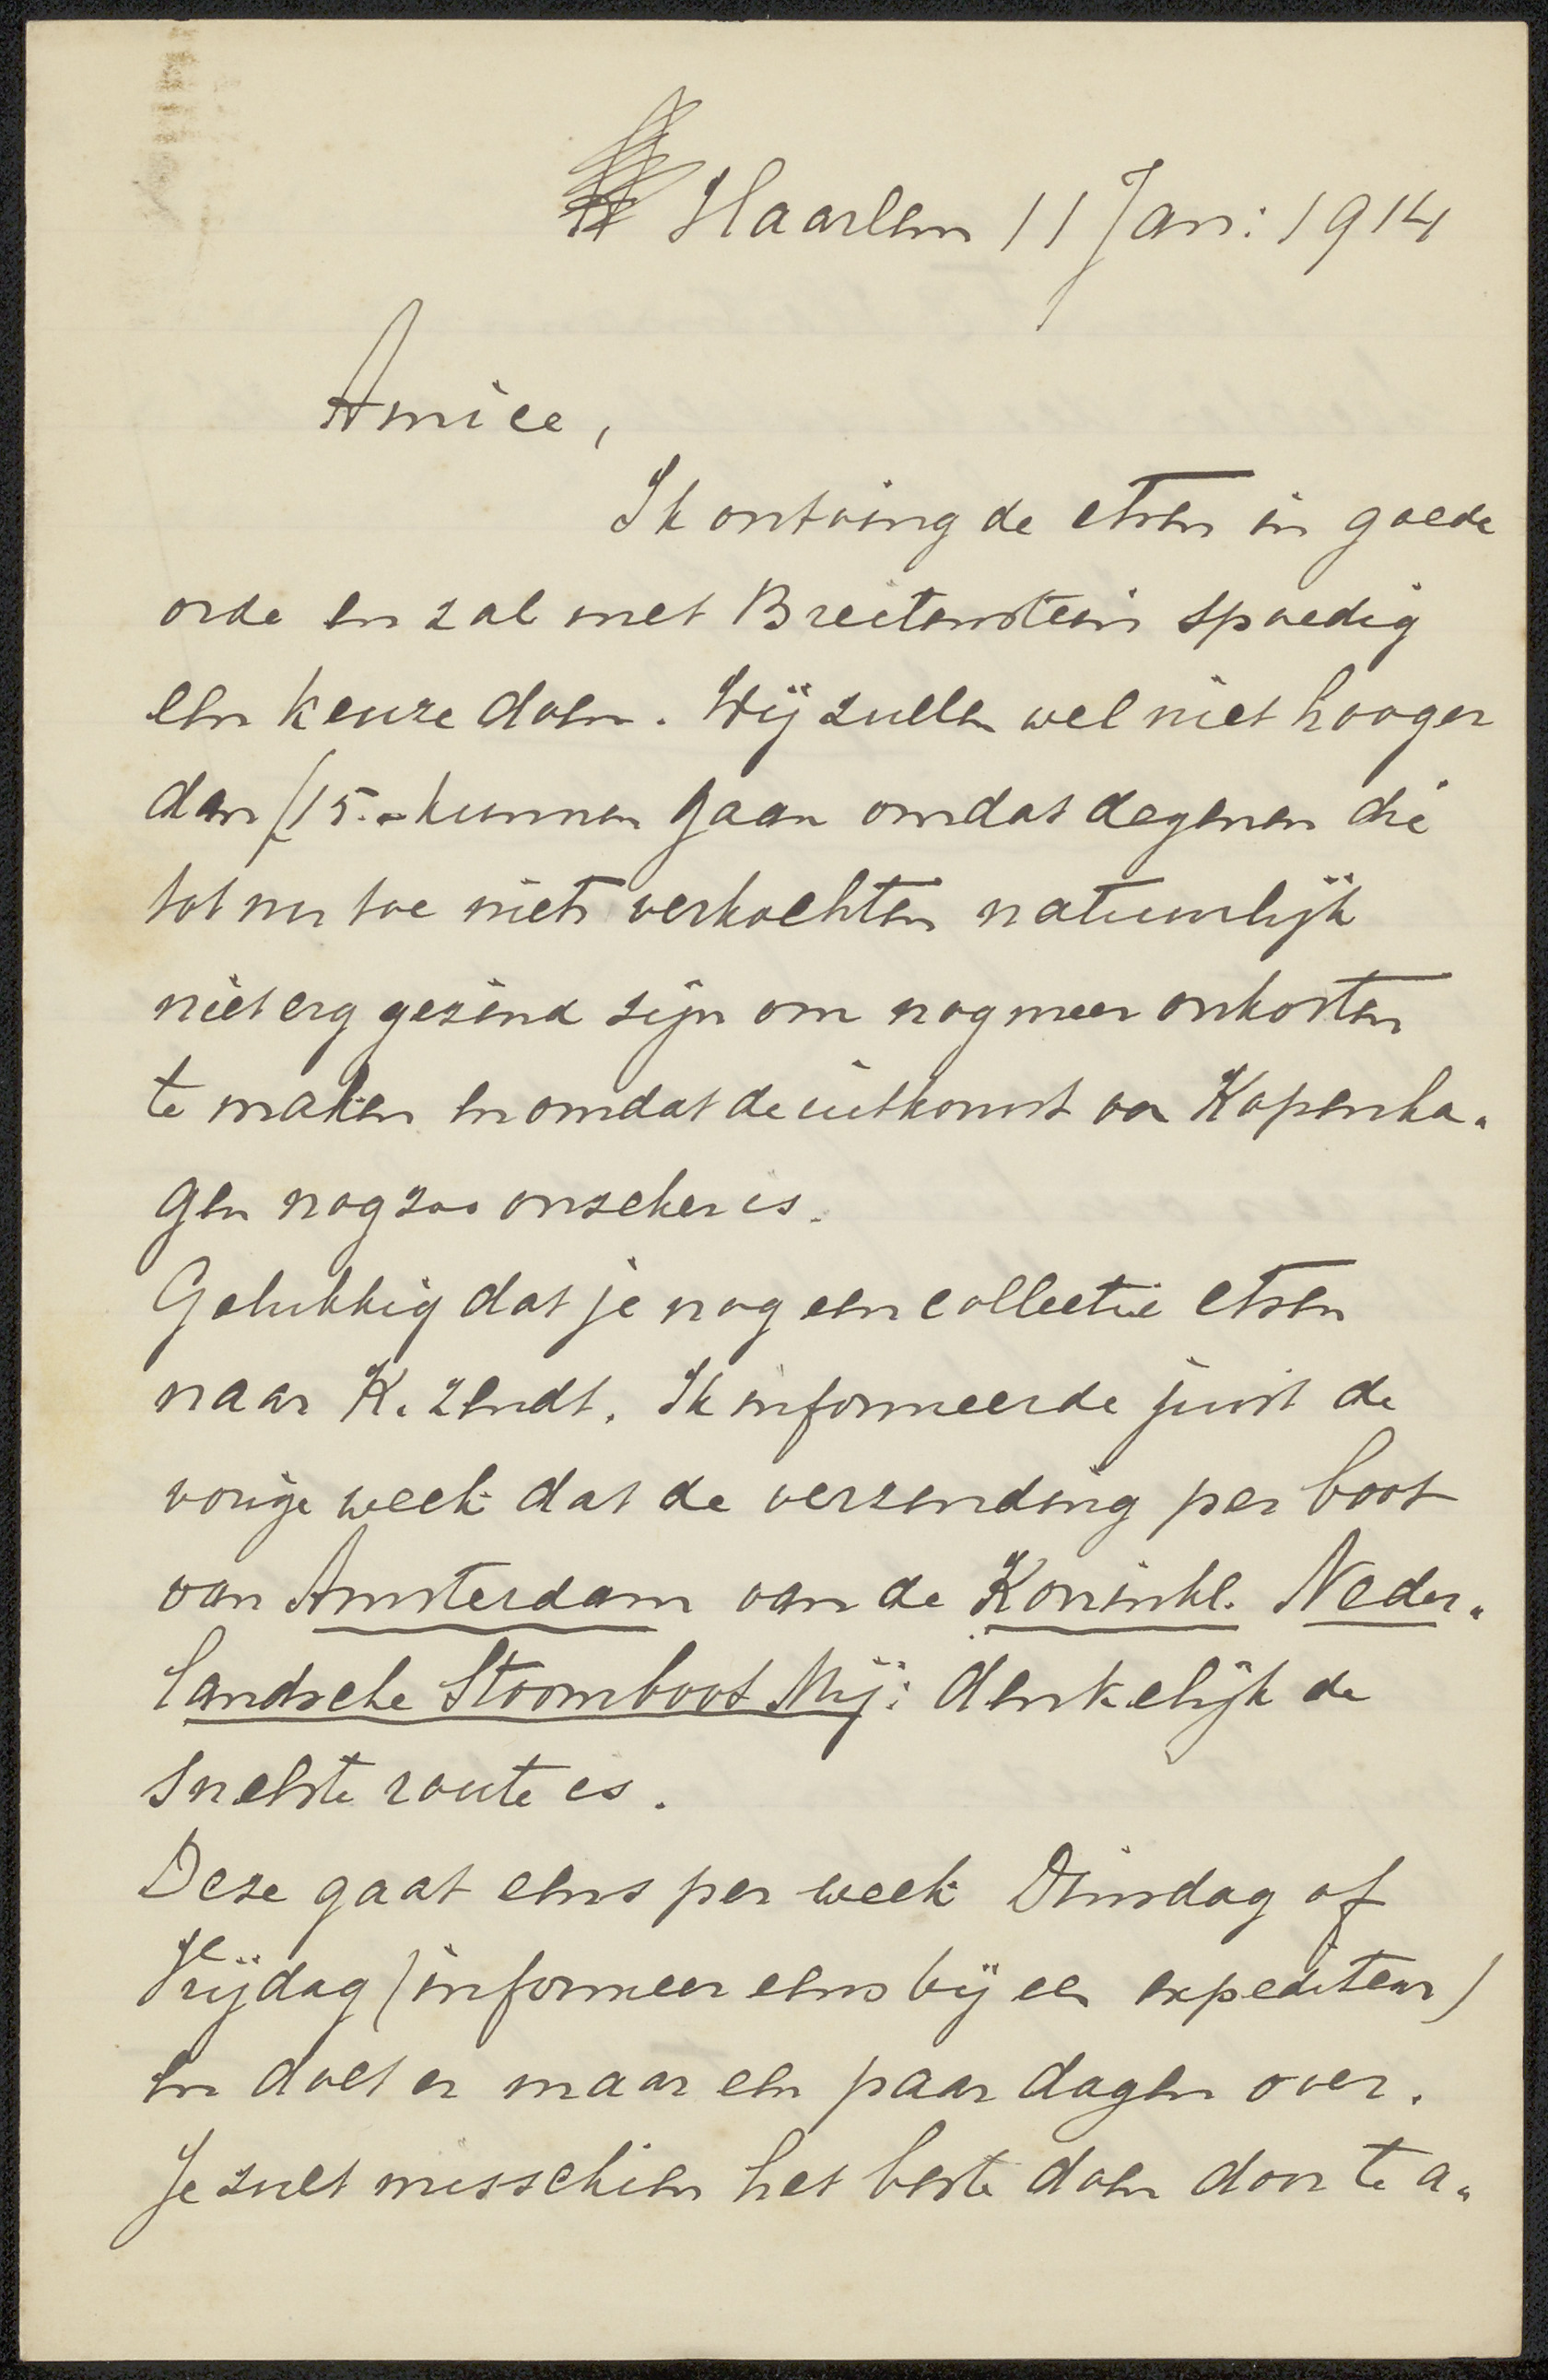 Haarlem 11 Jan: 1914
Amice,
Ik ontving de etsen in goede
orde en zal met Breitenstein spoedig
een keuze doen. Wij zullen wel niet hooger
dan f15.- kunnen gaan omdat degenen die
tot nu toe niets verkochten natuurlijk
niet erg gezind zijn om nog meer onkosten
te maken en omdat de uitkomst va Kopenha-
gen nog zoo onzeker is.
Gelukkig dat je nog een collectie etsen
naar K. zendt. Ik informeerde juist de
vorige week dat de verzending per boot
van Amsterdam van de Koninkl. Neder-
landsche Stoomboot Mij: denkelijk de
snelste route is.
Deze gaat eens per week Dinsdag of
Vrijdag (informeer eens bij een expediteur)
en doet er maar een paar dagen over.
Je zult misschien het beste doen door te a-